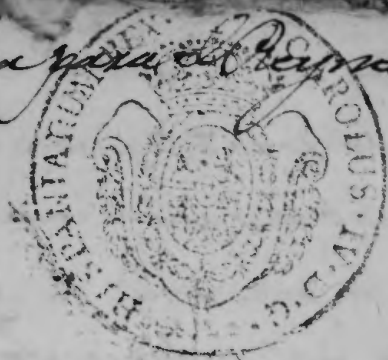 para el Reyno
CAROLUS · IV · D · G · HISPANIARUM REX